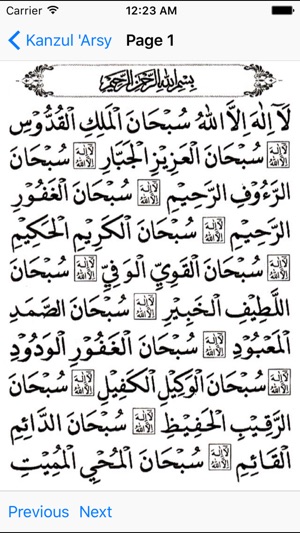 Carrier 12:23 AM
Kanzul 'Arsy Page 1
بِسْمِ اللهِ الرَّحْمٰنِ الرَّحِيْمِ
لَآ اِلٰهَ اِلَّا اللهُ سُبْحَانَ الْمَلِكِ الْقُدُّوْسِ
لَآ اِلٰهَ اِلَّا اللهُ سُبْحَانَ الْعَزِيْزِ الْجَبَّارِ لَآ اِلٰهَ اِلَّا اللهُ سُبْحَانَ
الرَّءُوْفِ الرَّحِيْمِ لَآ اِلٰهَ اِلَّا اللهُ سُبْحَانَ الْغَفُوْرِ
الرَّحِيْمِ لَآ اِلٰهَ اِلَّا اللهُ سُبْحَانَ الْكَرِيْمِ الْحَكِيْمِ
لَآ اِلٰهَ اِلَّا اللهُ سُبْحَانَ الْقَوِيِّ الْوَفِيِّ لَآ اِلٰهَ اِلَّا اللهُ سُبْحَانَ
اللَّطِيْفِ الْخَبِيْرِ لَآ اِلٰهَ اِلَّا اللهُ سُبْحَانَ الصَّمَدِ
الْمَعْبُوْدِ لَآ اِلٰهَ اِلَّا اللهُ سُبْحَانَ الْغَفُوْرِ الْوَدُوْدِ
لَآ اِلٰهَ اِلَّا اللهُ سُبْحَانَ الْوَكِيْلِ الْكَفِيْلِ لَآ اِلٰهَ اِلَّا اللهُ سُبْحَانَ
الرَّقِيْبِ الْحَفِيْظِ لَآ اِلٰهَ اِلَّا اللهُ سُبْحَانَ الدَّائِمِ
الْقَائِمِ لَآ اِلٰهَ اِلَّا اللهُ سُبْحَانَ الْمُحْيِ الْمُمِيْتِ
Previous Next